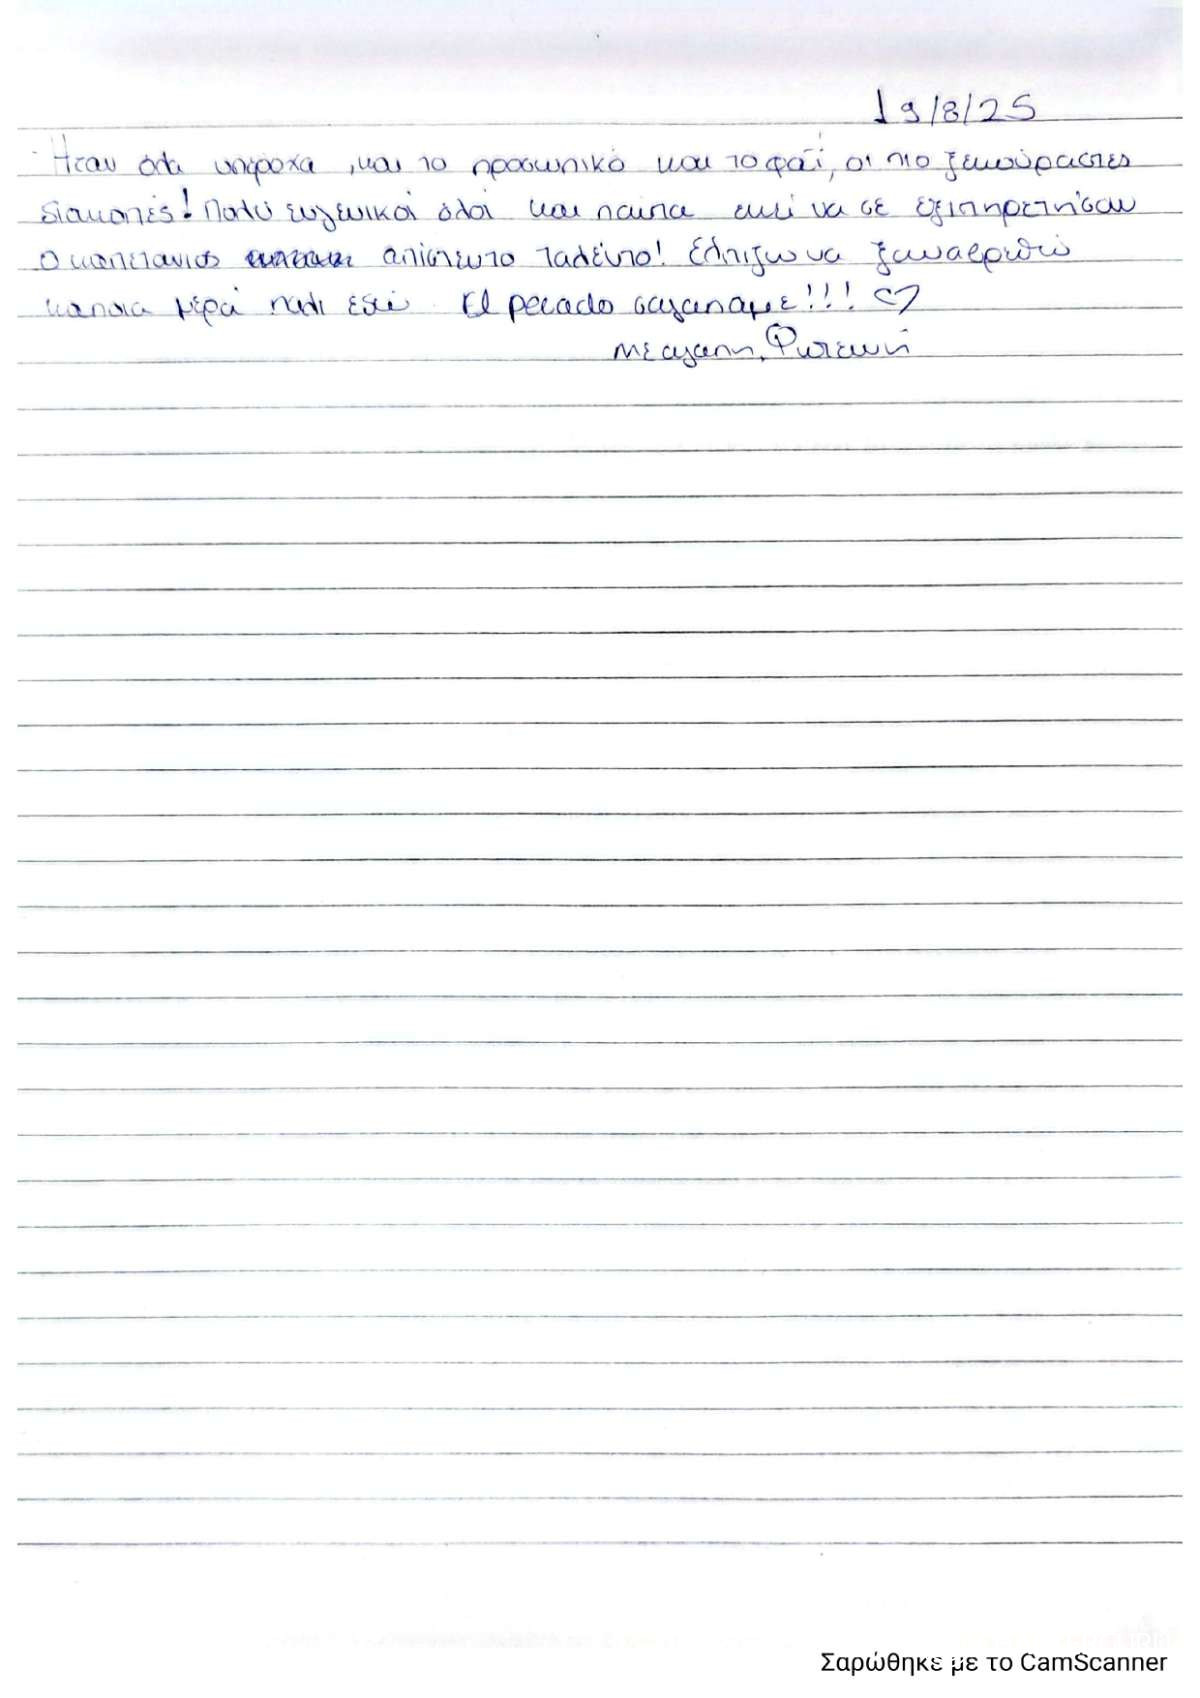 19/8/25
Ηταν όλα υπεροχα, και το προσωπικό και το φαΐ, οι πιο ξεκούραστες
διακοπές! Πολύ ευγενικοί όλοι και παντα εκεί να σε εξυπηρετήσουν
Ο καπετανιος απίστευτο ταλέντο! Ελπιζω να ξαναερθώ
καποια μέρα παλι εδώ El pecado σαγαπαμε!!! ♡
Με αγαπη, Φωτεινή
Σαρώθηκε με το CamScanner